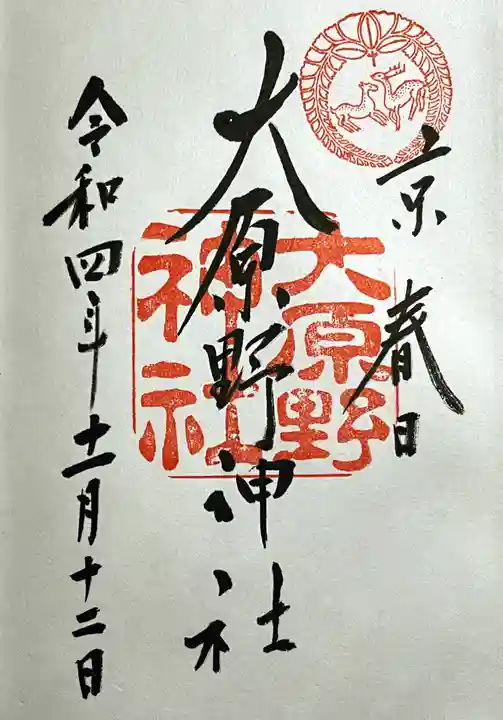 京 春日
大原野神社
大原野
神社
令和四年十一月十二日